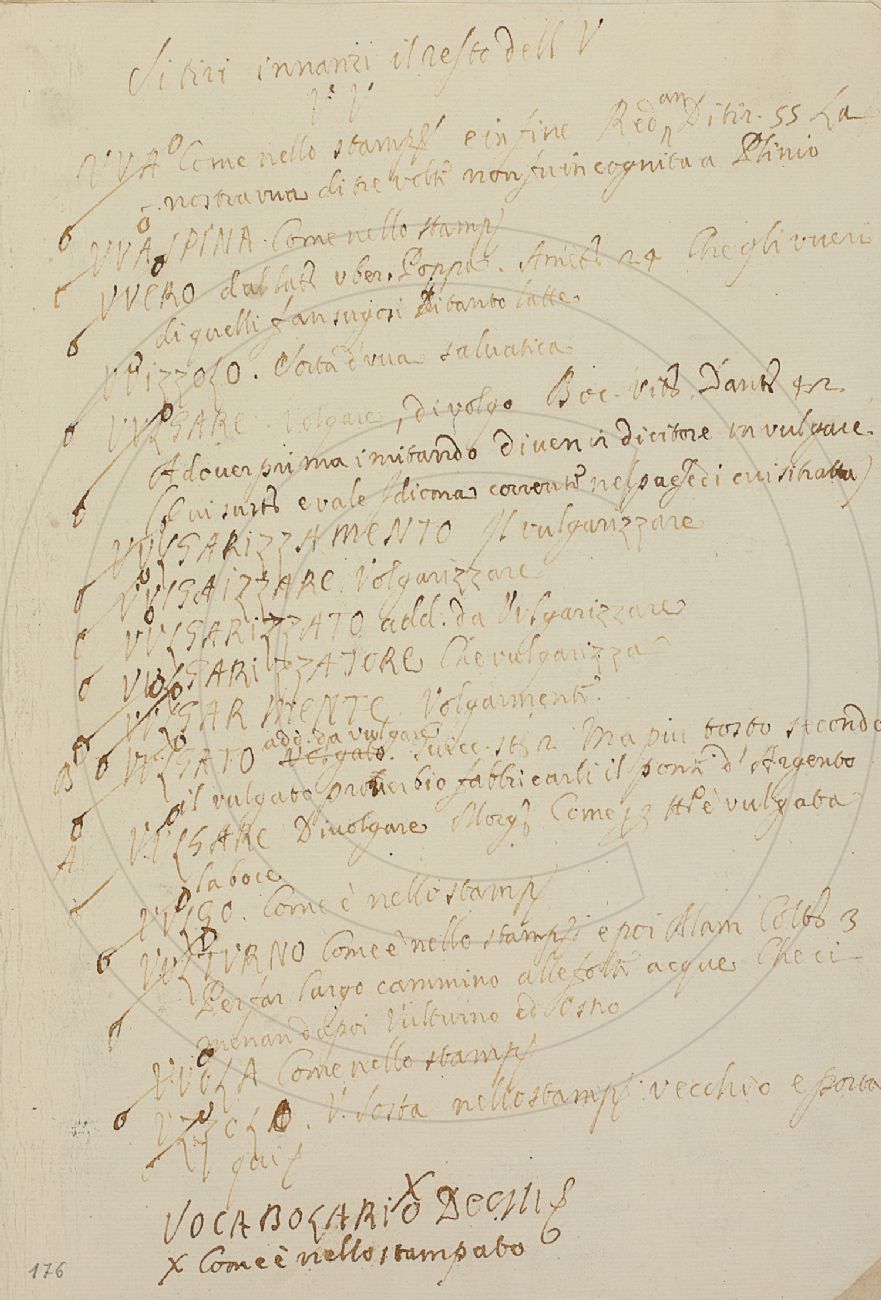 Si tiri innanzi il resto dell V
V V
VVA Come nello stamp. e in fine Red. an. Ditir. 55 La
nostra vva di tre volte non fu incognita a Plinio
VVA SPINA. Come nello stamp.
VVERO dal lat. vber. Poppa. Amet. 24 Che gli vueri
di quelli fan sugosi di tanto latte
VVIZZOLO. Sorta d'vua saluatica
VVLGARE Volgare, di volgo Boc. Vit. Dant. 42
Adouer prima imitando diuenir dicitore in vulgare
(Qui sust. e vale Idioma corrente nel paese di cui si tratta)
VVLGARIZZAMENTO Il vulgarizzare
VVLGAIZZARE Volgarizzare
VVLGARIZZATO add. da Vulgarizzare
VVLGARIZZATORE Che vulgarizza
VVLGARMENTE Volgarmente
VVLGATO add. da vulgare. Succ. st. 2 Ma piu tosto secondo
il vulgato prouerbio fabbricarli il ponte d'Argento
VVLGARE Diuolgare Morg. Come è vulgata
la boce
VVLGO. Come è nello stamp.
VVLTVRNO Come è nello stamp. e poi Alam. Colt. 3
Per far largo cammino alle folte acque Che ci
menando poi Vulturno ed Ostro
VVOLA Come nello stamp.
VZZOLO. V. Sosta nello stamp. vecchio e porta
qui
VOCABOLARIO DEGLI
X Come è nello stampato
176